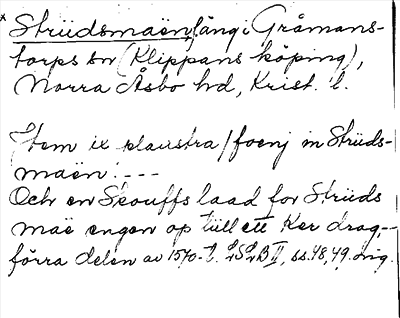 * Strüdsmaën, äng i Gråmans-
torps sn (Klippans köping),
Norra Åsbo hd, Krist. l.
Item ix plaustra /foenj in Strüds-
maën: ---
Och en Skouffs laad for Strüds
maë engen op tüll ett Ker drag,--
förra delen av 1570-t. LSLB II, ss. 48, 49. orig.